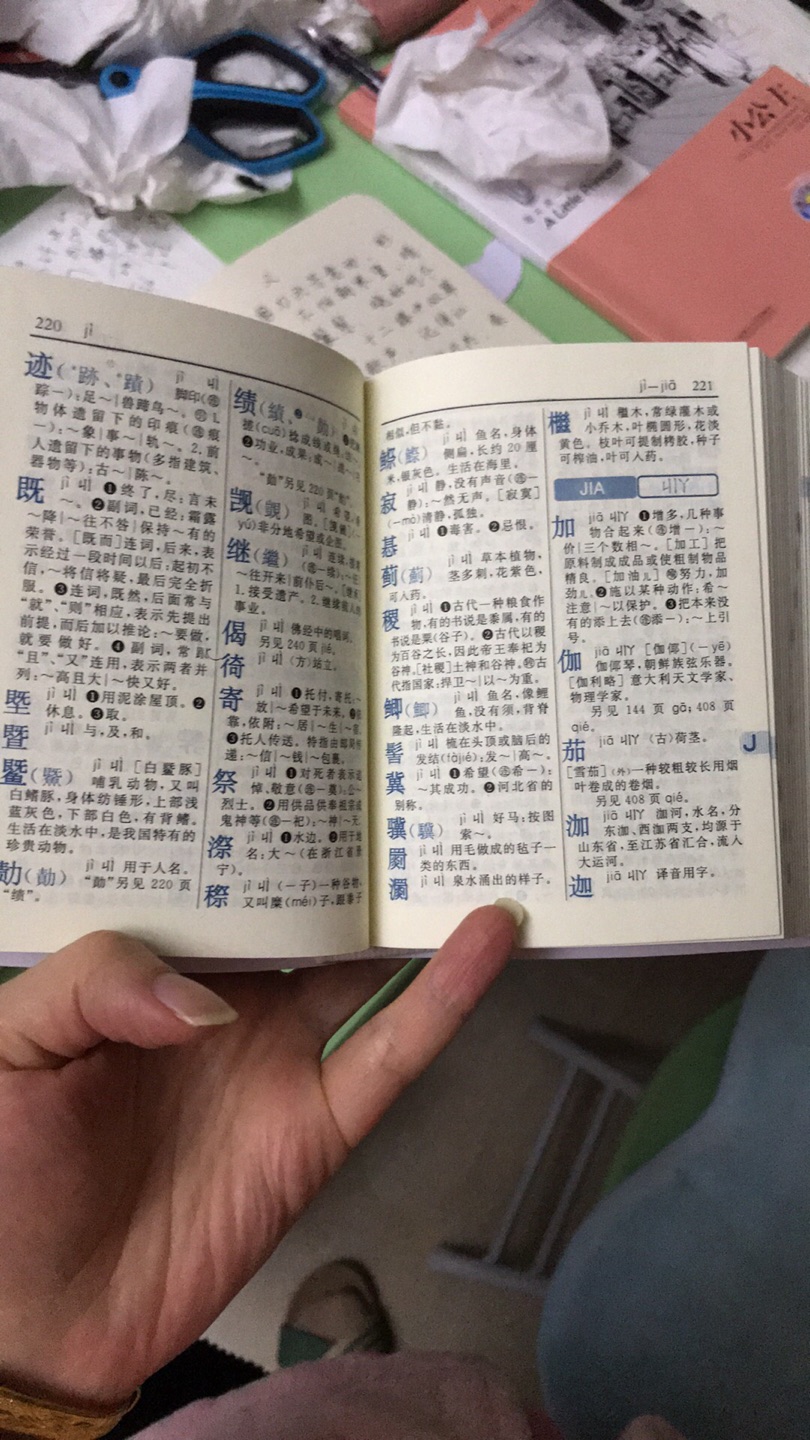 小公主
A Little Princess
220 jì
迹(*跡、*蹟) jì ㄐㄧˋ 脚印(㊓
踪一):足~|兽蹄鸟~。㊁1.
物体遗留下的印痕(㊓痕
一):~象|事~|轨~。2.前
人遗留下的事物(多指建筑、
器物等):古~|陈~。
既 jì ㄐㄧˋ ❶终了,尽:言未
~。❷副词,已经:霜露
~降|~往不咎|保持~有的
荣誉。[既而]连词,后来,表
示经过一段时间以后:起初不
信,~将信将疑,最后完全折
服。❸连词,既然,后面常与
“就”、“则”相应,表示先提出
前提,而后加以推论:~要做,
就要做好。❹副词,常跟
“且”、“又”连用,表示两者并
列:~高且大|~快又好。
塈 jì ㄐㄧˋ ❶用泥涂屋顶。❷
休息。❸取。
暨 jì ㄐㄧˋ 与,及,和。
鱀(鱀) jì ㄐㄧˋ [白鱀豚]
哺乳动物,又叫
白鳍豚,身体纺锤形,上部浅
蓝灰色,下部白色,有背鳍。
生活在淡水中,是我国特有的
珍贵动物。
勣(勣) jì ㄐㄧˋ 用于人名。
“勣”另见220页
“绩”。
绩
❷功业,成果:成~
“勣”另见220页“勣”。
觊(覬)
yú)非分地希望或企图。
继(繼)
~往开来|前仆后~。
1.接受遗产。2.继续前人的
事业。
偈 jì ㄐㄧˋ 佛经中的唱词。
另见240页jié。
徛 jì ㄐㄧˋ (方)站立。
寄 jì ㄐㄧˋ ❶托付,寄托:~
放|~希望于未来。❷依
靠,依附:~居|~生|~宿。
❸托人传送。特指由邮局传
递:~信|~钱|~包裹。
祭 jì ㄐㄧˋ ❶对死者表示追
悼、敬意(㊓一奠):公~
烈士。❷用供品供奉祖宗或
鬼神等(㊓一祀):~神|~天。
漈 jì ㄐㄧˋ ❶水边。❷用于地
名:大~(在浙江省景
宁)。
穄 jì ㄐㄧˋ (一子)一种谷物,
又叫糜(méi)子,跟黍子
jì—jiā 221
相似,但不黏。
鲚(鱭) jì ㄐㄧˋ 鱼名,身体
侧扁,长约20厘
米,银灰色。生活在海里。
寂 jì ㄐㄧˋ 静,没有声音(㊓一
静):~然无声。[寂寞]
(一mò)清静,孤独。
惎 jì ㄐㄧˋ ❶毒害。❷忌恨。
蓟(薊) jì ㄐㄧˋ 草本植物,
茎多刺,花紫色,
可入药。
稷 jì ㄐㄧˋ ❶古代一种粮食作
物,有的书说是黍属,有的
书说是粟(谷子)。❷古代以稷
为百谷之长,因此帝王奉祀为
谷神。[社稷]土神和谷神,㊕古
代指国家:捍卫~|以~为重。
鲫(鯽) jì ㄐㄧˋ 鱼名,像鲤
鱼,没有须,背脊
隆起,生活在淡水中。
髻 jì ㄐㄧˋ 梳在头顶或脑后的
发结(fàjié):发~|高~。
冀 jì ㄐㄧˋ ❶希望(㊓希一):
~其成功。❷河北省的
别称。
骥(驥) jì ㄐㄧˋ 好马:按图
索~。
罽 jì ㄐㄧˋ 用毛做成的毡子一
类的东西。
瀱 jì ㄐㄧˋ 泉水涌出的样子。
檵 jì ㄐㄧˋ 檵木,常绿灌木或
小乔木,叶椭圆形,花淡
黄色。枝叶可提制栲胶,种子
可榨油,叶可入药。
JIA ㄐㄧㄚ
加 jiā ㄐㄧㄚ ❶增多,几种事
物合起来(㊓增一):~
价|三个数相~。[加工]把
原料制成成品或使粗制物品
精良。[加油儿]㊕努力,加
劲儿。❷施以某种动作:希~
注意|~以保护。❸把本来没
有的添上去(㊓添一):~上引
号。
伽 jiā ㄐㄧㄚ [伽倻](一yē)
伽倻琴,朝鲜族弦乐器。
[伽利略]意大利天文学家、
物理学家。
另见144页gā;408页
qié。
茄 jiā ㄐㄧㄚ (古)荷茎。
[雪茄](外)一种较粗较长用烟
叶卷成的卷烟。
另见408页qié。
泇 jiā ㄐㄧㄚ 泇河,水名,分
东泇、西泇两支,均源于
山东省,至江苏省汇合,流入
大运河。
迦 jiā ㄐㄧㄚ 译音用字。
J